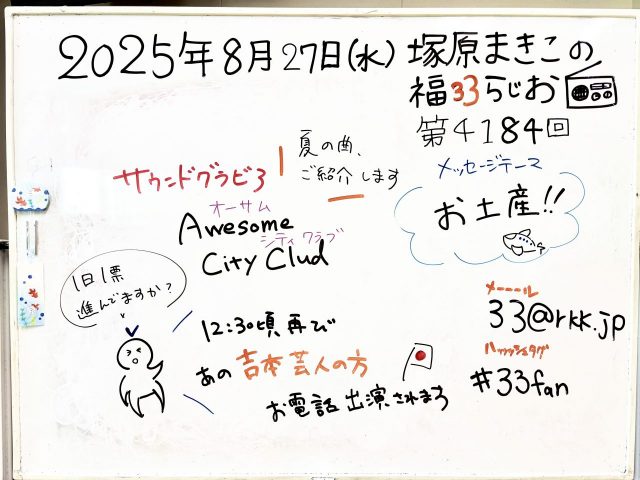 2025年8月27日(水) 塚原まきこの
福33らじお
第4184回
メッセージテーマ
お土産!!
夏の曲、
ご紹介します
サウンドグラビろ
オーサム
Awesome
シティ クラブ
City Clud
1日1票
進んでますか?
12:30頃 再び
あの 吉本芸人の方
お電話出演されまろ
メーール
33@rkk.jp
ハッシュタグ
#33fan